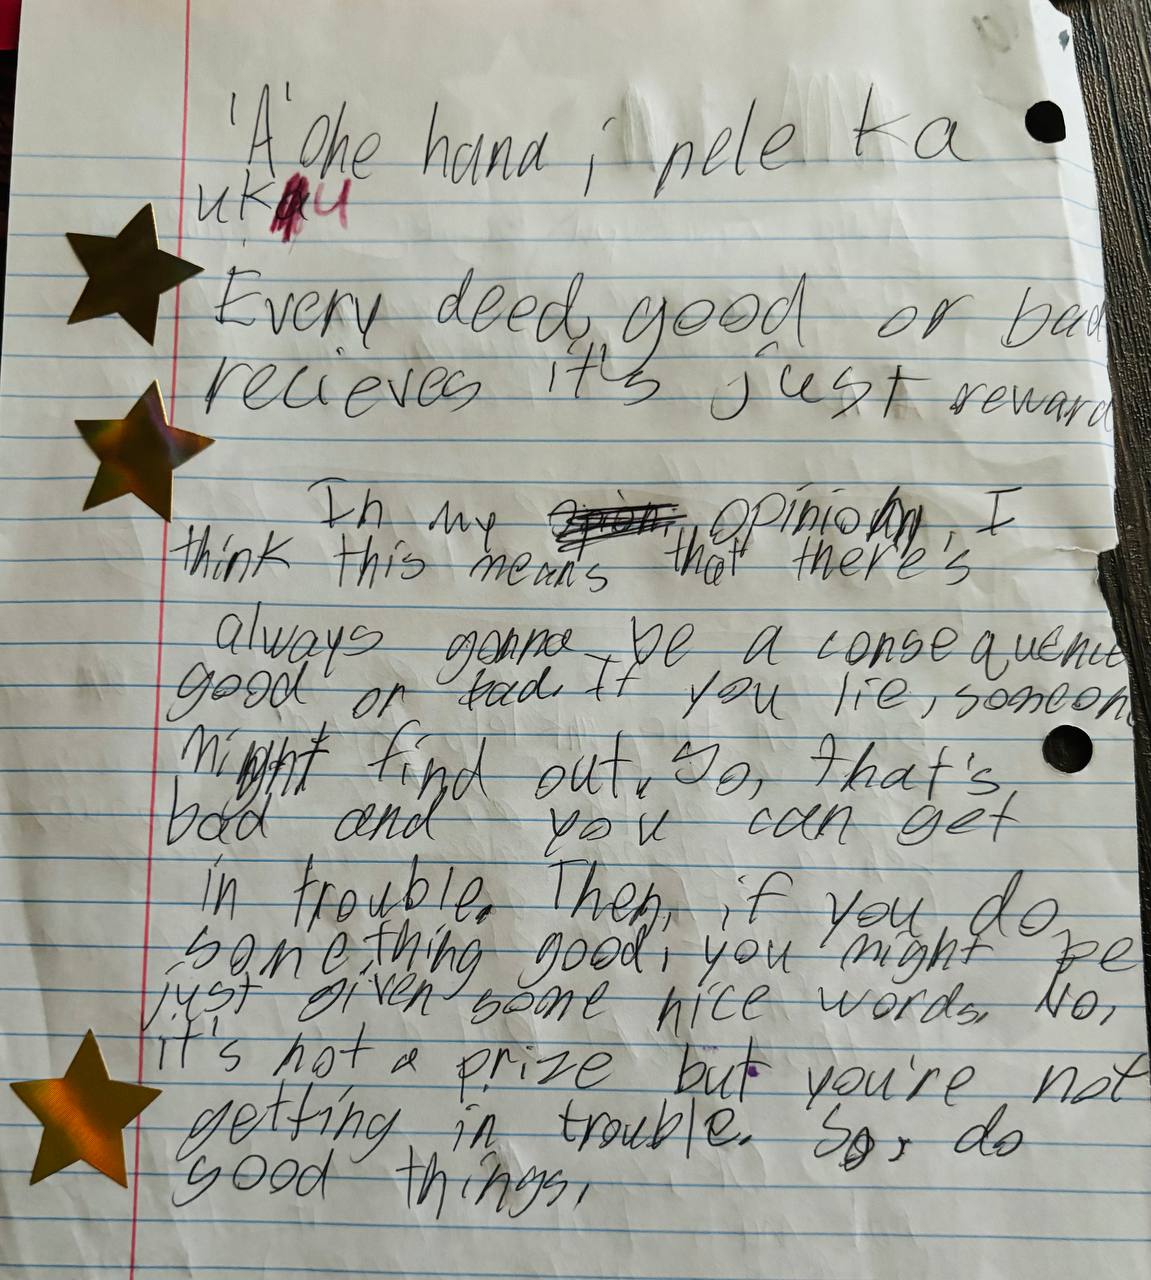 'A'ohe hana i nele ka
uku
Every deed, good or bad
recieves it's just reward
In my opinion, I
think this means that there's
always gonna be a consequence
good or bad. If you lie, someone
might find out. So, that's
bad and you can get
in trouble. Then, if you do
something good, you might be
just given some nice words. No,
it's not a prize but you're not
getting in trouble. So, do
good things.